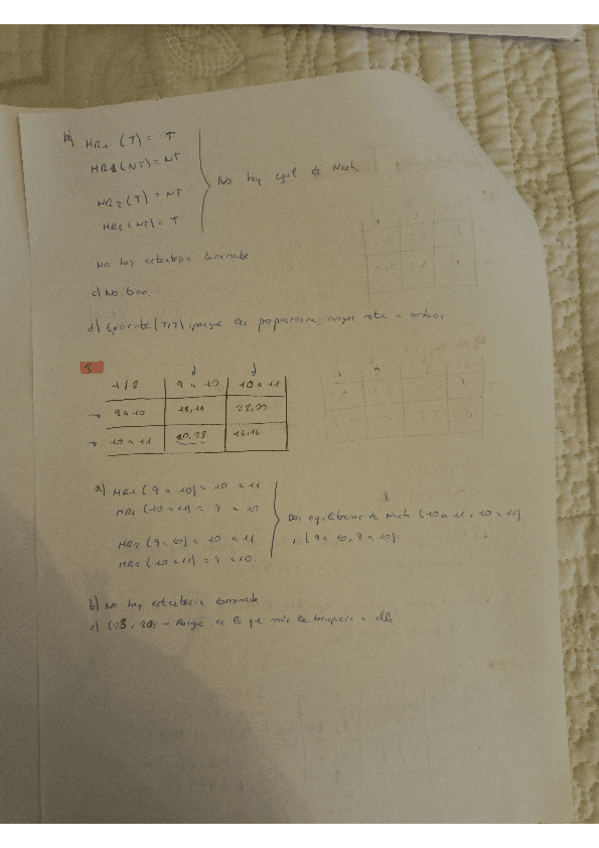 b) MR1 (T) = T
MR1 (NT) = NT
MR2 (T) = NT
MR2 (NT) = T
No hay equil de Nash
No hay estrategia dominante
c) No tiene.
d) Eficiente (T,T) porque les proporciona mayor a ambos
3
1/2 9 a 10 10 a 11
9 a 10
10 a 11 20, 23 16,16
a) MR1 (9 a 10) = 10 a 11
MR1 (10 a 11) = 9 a 10
MR2 (9 a 10) = 10 a 11
MR2 (10 a 11) = 9 a 10.
Dos equilibrios de Nash (10 a 11, 10 a 11)
, (9 a 10, 9 a 10)
b) No hay estrategia dominante
c) (23, 20) - Porque es lo que más le a ella